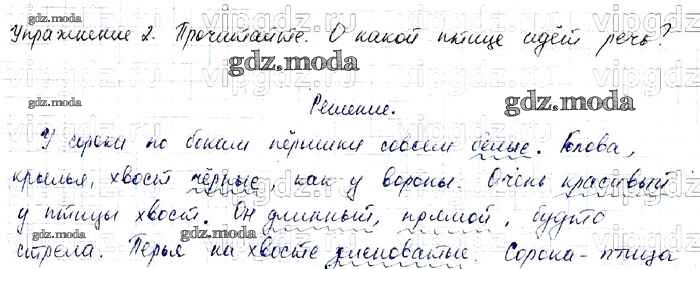 Упражнение 2. Прочитайте. О какой птице идёт речь?
Решение.
У сороки по бокам пёрышки совсем белые. Голова,
крылья, хвост чёрные, как у вороны. Очень красивый
у птицы хвост. Он длинный, прямой, будто
стрела. Перья на хвосте зеленоватые. Сорока - птица
gdz.moda
gdz.moda
gdz.moda
gdz.moda
gdz.moda
gdz.moda
gdz.moda
gdz.moda